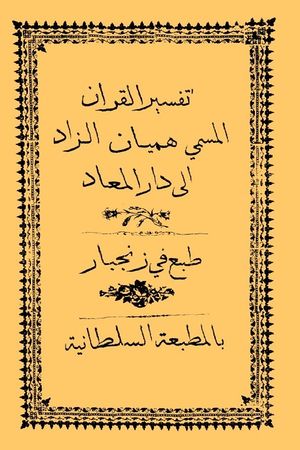 تفسير القران
المسمي هميان الزاد
الى دار المعاد
طبع في زنجبار
بالمطبعة السلطانية